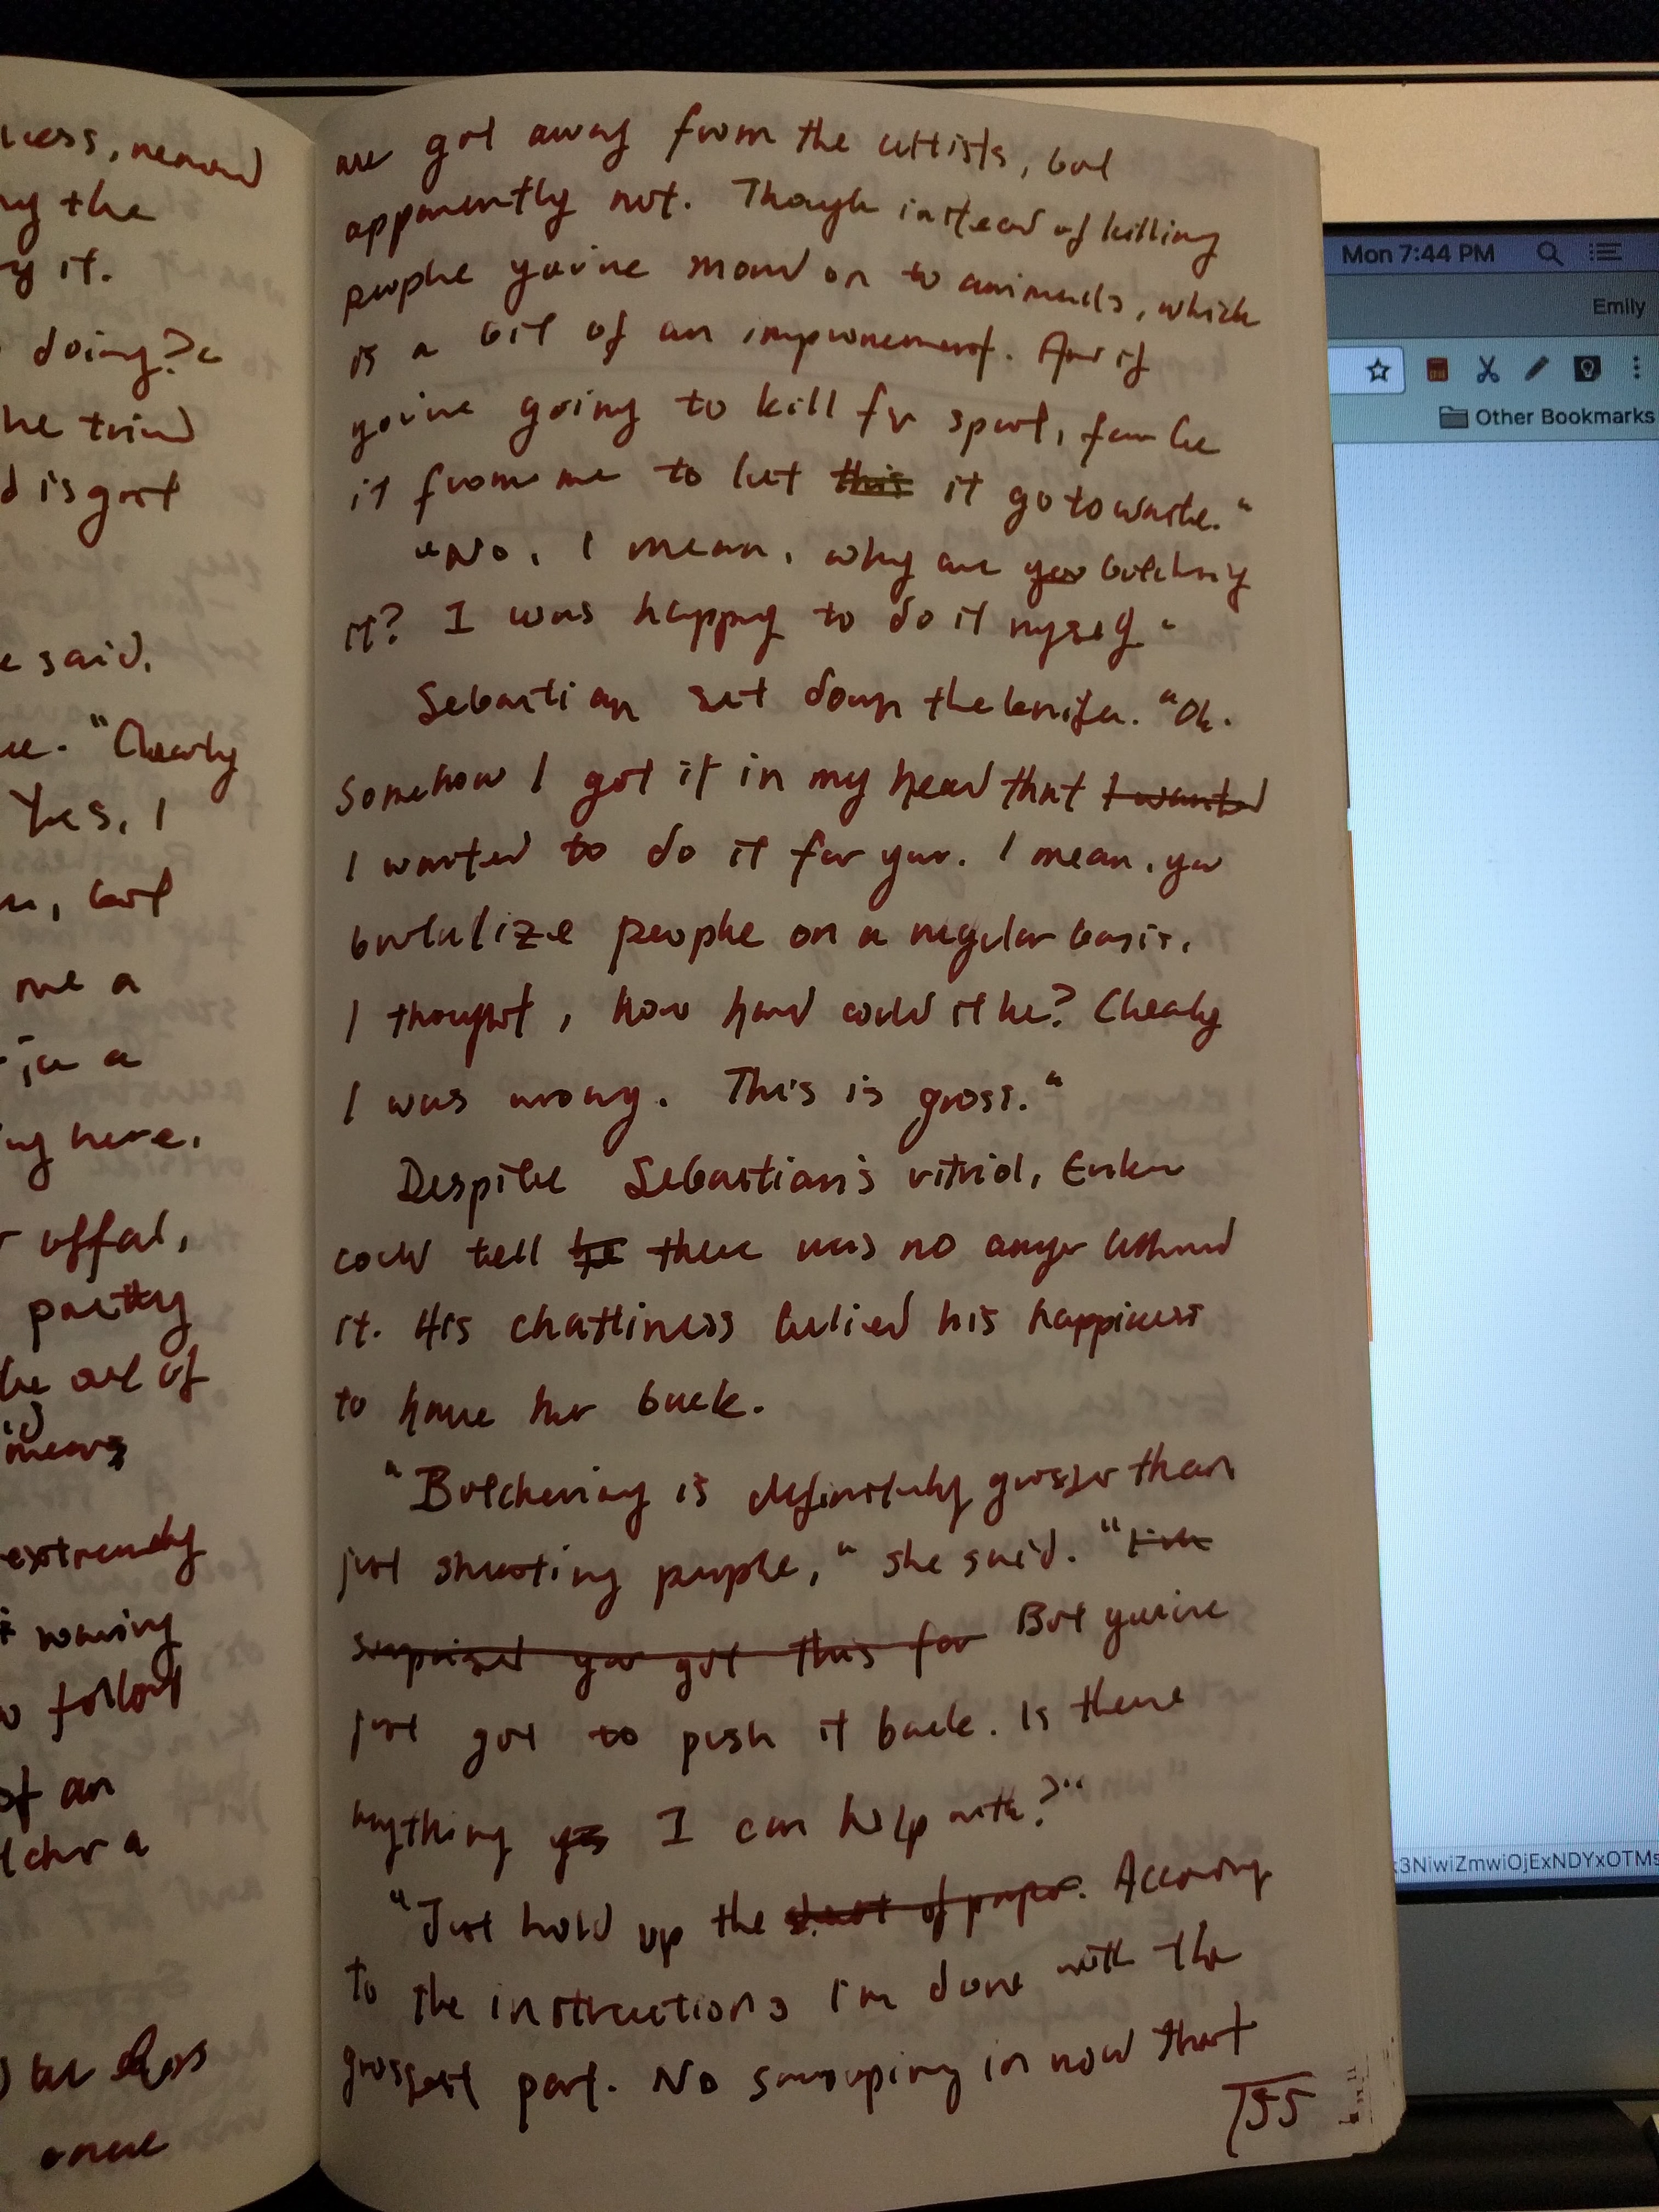 ness, 
ng the
y it.
doing?
he tried
d is got
e said.
"Clearly
Yes, I
, but
me a
in a
ng here.
offal,
pretty
be out of
means
extremely
waving
follow
of an
a
once
we got away from the cultists, but
apparently not. Though instead of killing
people you've moved on to animals, which
is a bit of an improvement. And if
you're going to kill for sport, far be
it from me to let this it go to waste."
"No, I mean, why are you butchering
it? I was happy to do it myself."
Sebastian set down the knife. "Oh.
Somehow I got it in my head that I wanted
I wanted to do it for you. I mean, you
brutalize people on a regular basis.
I thought, how hard could it be? Clearly
I was wrong. This is gross."
Despite Sebastian's vitriol, Erika
could tell he there was no anger behind
it. His chattiness belied his happiness
to have her back.
"Butchering is definitely grosser than
just shooting people," she said. "I'm
surprised you got this far But you've
just got to push it back. Is there
anything I can help with?"
"Just hold up the sheet of paper. According
to the instructions I'm done with the
grossest part. No swooping in now that
155
Mon 7:44 PM
Emily
Other Bookmarks
3NiwiZmwiOjExNDYxOTMs